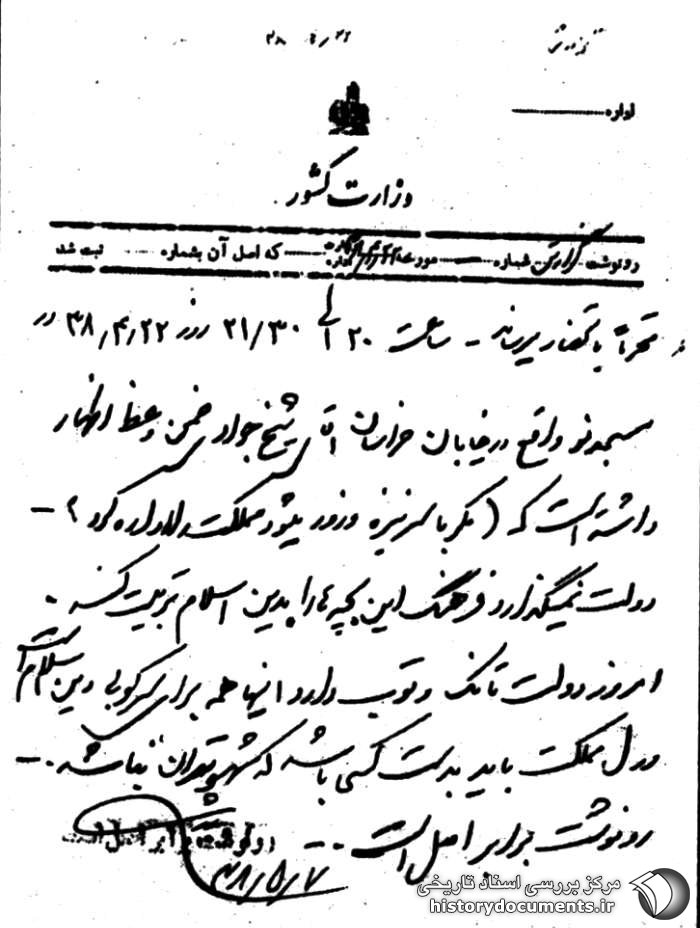 ۳۸
اداره
وزارت کشور
رونوشت گزارش شماره مورخه اداره که اصل آن بشماره ثبت شد
محترماً باستحضار میرساند - ساعت ۲۰ الی ۲۱/۳۰ روز ۳۸٫۴٫۲۲ در
مسجد نو واقع در خیابان خراسان آقای شیخ جواد ضمن وعظ اظهار
داشته است که (مگر با سرنیزه و زور میشود مملکت را اداره کرد) -
دولت نمیگذارد فرهنگ این بچه ها را بدین اسلام تربیت کند .
امروز دولت تانک و توپ دارد اینها همه برای سرکوبی دین اسلام است
مملکت باید بدست کسی باشد که شهوتران نباشد . -
رونوشت برابر اصل است . -
رونوشت برابر اصل است
۳۸/۵/۷
مرکز بررسی اسناد تاریخی
historydocuments.ir